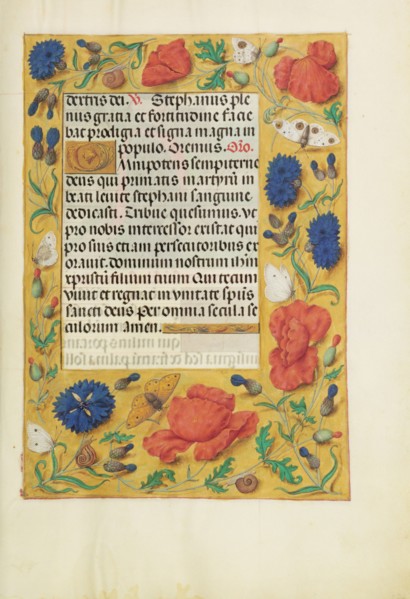 dextris dei. V. Stephanus ple
nus gratia et fortitudine facie
bat prodigia et signa magna in
populo. Oremus. Oro.
Omnipotens sempiterne
deus qui primatis martyrū in
beati levite stephani sanguine
dedicasti. Tribue quesumus. vt
pro nobis intercessor existat qui
pro suis etiam persecutoribus ex
oravit. dominum nostrum ihm
xpristū filium tuum Qui tecum
vivit et regnat in vnitate spūs
sancti deus per omnia secula se
culorum amen.